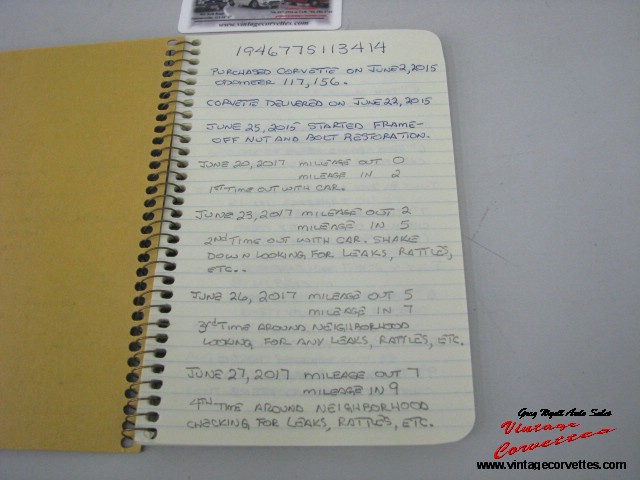 www.vintagecorvettes.com
1946775113414
PURCHASED CORVETTE ON JUNE 2, 2015
ODOMEER 117,156.
CORVETTE DELIVERED ON JUNE 22, 2015
JUNE 25, 2015 STARTED FRAME-
OFF NUT AND BOLT RESTORATION.
JUNE 20, 2017 MILEAGE OUT 0
MILEAGE IN 2
1st TIME OUT WITH CAR.
JUNE 23, 2017 MILEAGE OUT 2
MILEAGE IN 5
2nd TIME OUT WITH CAR. SHAKE
DOWN LOOKING FOR LEAKS, RATTLES,
ETC..
JUNE 26, 2017 MILEAGE OUT 5
MILEAGE IN 7
3rd TIME AROUND NEIGHBORHOOD
LOOKING FOR ANY LEAKS, RATTLES, ETC.
JUNE 27, 2017 MILEAGE OUT 7
MILEAGE IN 9
4TH TIME AROUND NEIGHBORHOOD
CHECKING FOR LEAKS, RATTLES, ETC.
Greg Wyatt Auto Sales
Vintage
Corvettes
www.vintagecorvettes.com